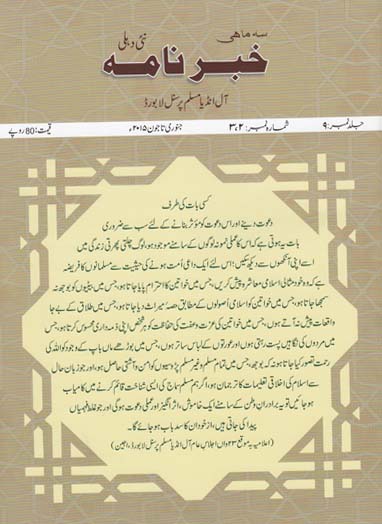 سہ ماہی
نئی دہلی
خبرنامہ
آل انڈیا مسلم پرسنل لا بورڈ
جلد نمبر: ۹ شمارہ نمبر: ۲، ۳ جنوری تا جون ۲۰۱۵ء قیمت: 80 روپے
کسی بات کی طرف
دعوت دینے اور اس دعوت کو مؤثر بنانے کے لئے سب سے ضروری
بات یہ ہوتی ہے کہ اس کا عملی نمونہ لوگوں کے سامنے موجود ہو، لوگ چلتی پھرتی زندگی میں
اسے اپنی آنکھوں سے دیکھ سکیں؛ اس لئے ایک داعی اُمت ہونے کی حیثیت سے مسلمانوں کا فریضہ
ہے کہ وہ خود مثالی اسلامی معاشرہ پیش کریں، جس میں خواتین کا احترام پایا جاتا ہو، جس میں بیٹیوں کو بوجھ نہ
سمجھا جاتا ہو، جس میں خواتین کو اسلامی اصولوں کے مطابق حصۂ میراث دیا جاتا ہو، جس میں طلاق کے بے جا
واقعات پیش نہ آتے ہوں، جس میں خواتین کی عزت و عفت کی حفاظت کو ہر شخص اپنی ذمہ داری محسوس کرتا ہو، جس
میں مردوں کی نگاہیں پست رہتی ہوں اور عورتوں کے لباس ساتر ہوں، جس میں بوڑھے ماں باپ کے وجود کو اللہ کی
رحمت تصور کیا جاتا ہو نہ کہ بوجھ، جس میں تمام مسلم و غیر مسلم پڑوسیوں کو امن و آشتی حاصل ہو، اور جو زبان حال
سے اسلام کی اخلاقی تعلیمات کا ترجمان ہو، اگر ہم مسلم سماج کی ایسی شناخت قائم کرنے میں کامیاب
ہو جائیں تو یہ برادران وطن کے سامنے ایک خاموش، اثر انگیز اور عملی دعوت ہوگی اور جو غلط فہمیاں
پیدا کی جاتی ہیں، از خود ان کا سدباب ہو جائے گا۔
(اعلامیہ بموقع ۲۳واں اجلاس عام آل انڈیا مسلم پرسنل لا بورڈ، اجین)